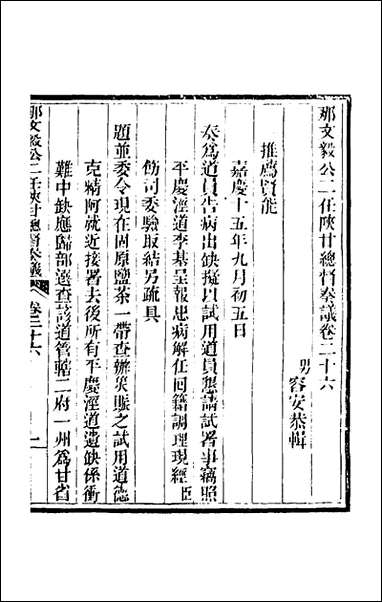 那文毅公二任陝甘總督奏議卷二十六
男容安恭輯
推薦賢能
嘉慶十五年九月初五日
奏爲道員告病出缺擬以試用道員懇請試署事竊照
平慶涇道李基呈報患病解任回籍調理現經臣
飭司委驗取結另疏具
題並委令現在固原鹽茶一帶查辦災賑之試用道德
克精阿就近接署去後所有平慶涇道遺缺係衝
難中缺應歸部選查該道管轄二府一州爲甘省
那文毅公二任陝甘總督奏議
卷二十六
一